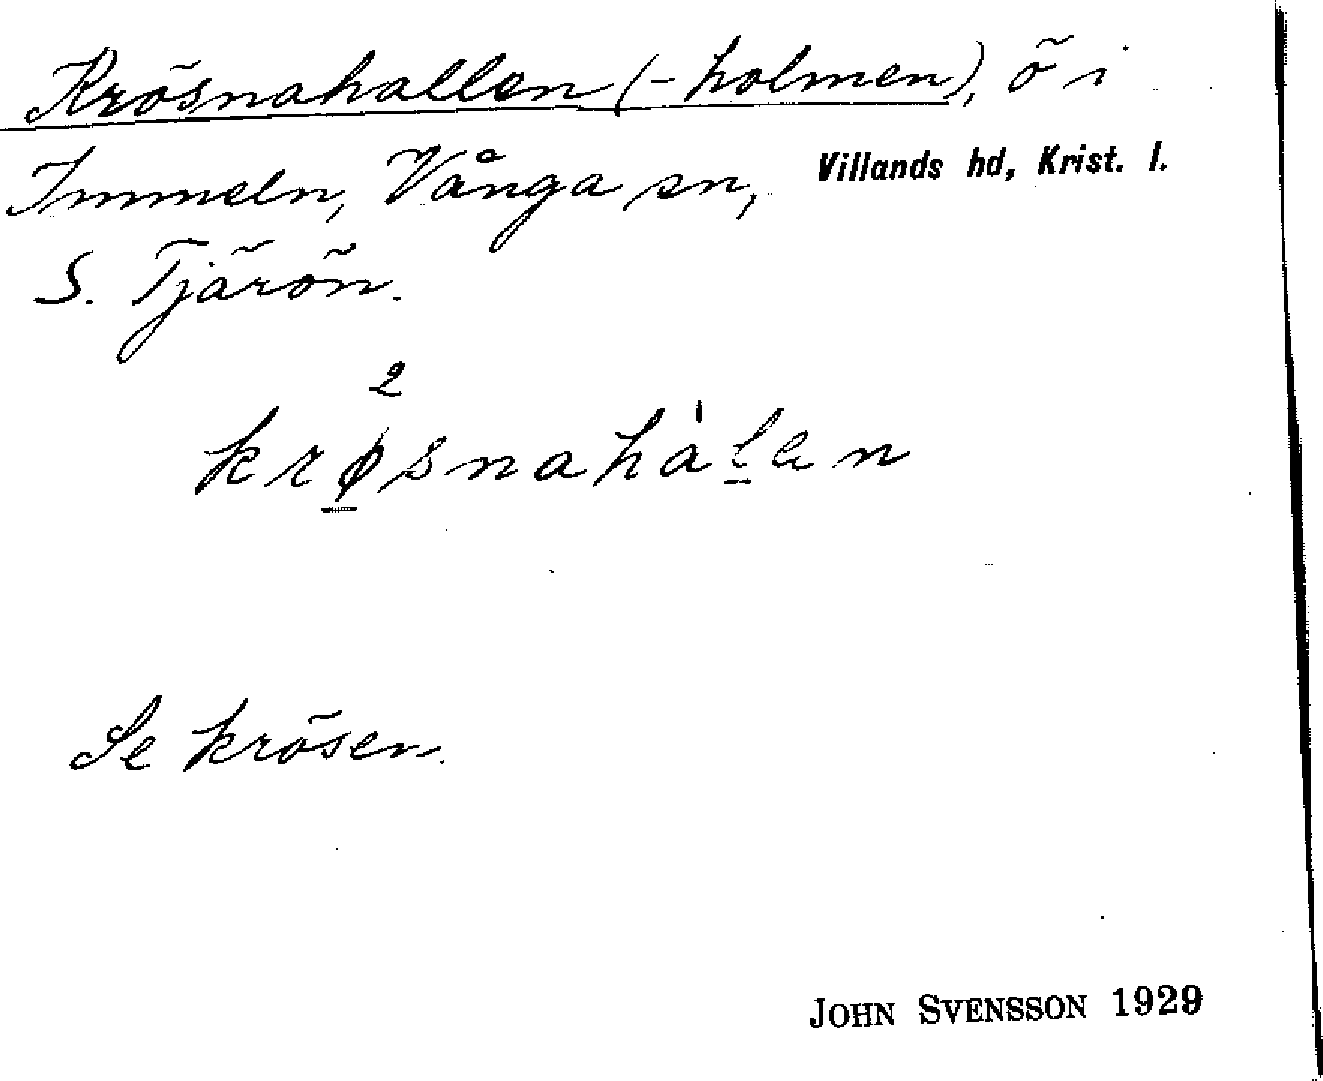 Krösnahallen (-holmen), ö i
Immeln, Vånga sn, Villands hd, Krist. l.
S. Tjärön.
2
krøsnahalen
Se krösen.
JOHN SVENSSON 1929